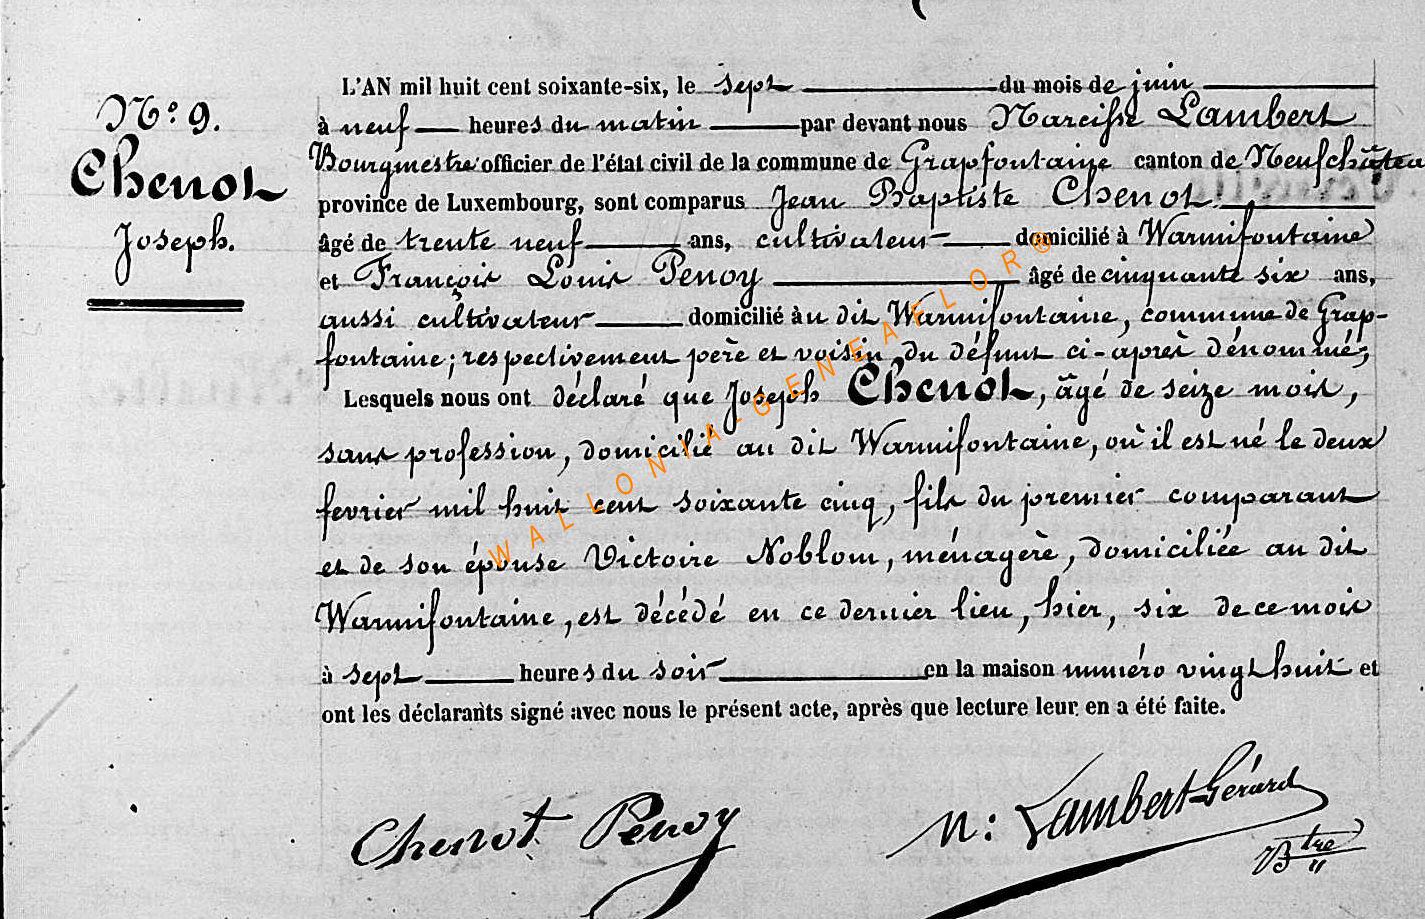 N.º 9.
Chenot
Joseph.
L'AN mil huit cent soixante-six, le sept du mois de juin
à neuf heures du matin par devant nous Narcisse Lambert
Bourgmestre officier de l'état civil de la commune de Grapfontaine canton de Neufchâtea
province de Luxembourg, sont comparus Jean Baptiste Chenot
âgé de trente neuf ans, cultivateur domicilié à Warmifontaine
et François Louis Penoy âgé de cinquante six ans,
aussi cultivateur domicilié au dit Warmifontaine, commune de Grap-
fontaine; respectivement père et voisin du défunt ci-après dénommé;
Lesquels nous ont déclaré que Joseph Chenot, âgé de seize mois,
sans profession, domicilié au dit Warmifontaine, où il est né le deux
fevrier mil huit cent soixante cinq, fils du premier comparant
et de son épouse Victoire Noblom, ménagère, domiciliée au dit
Warmifontaine, est décédé en ce dernier lieu, hier, six de ce mois
à sept heures du soir en la maison numéro vingt huit et
ont les déclarants signé avec nous le présent acte, après que lecture leur en a été faite.
Chenot Penoy N: Lambert-Gérard
Btre
WALLONIA-GENEAFLOR®